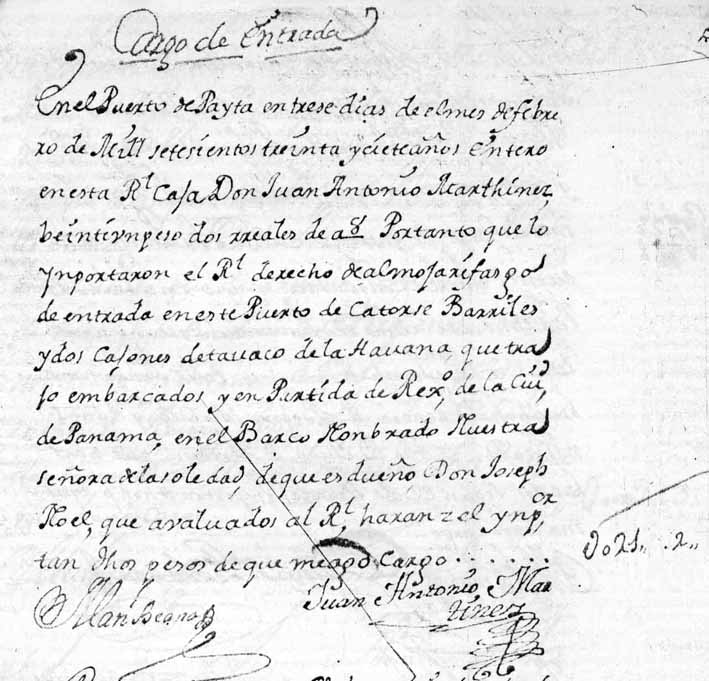 Cargo de Entrada
En el Puerto de Payta en trese dias de el mes de febre
ro de Mill setesientos treinta y ciete años Entero
en esta Rl Caja Don Juan Antonio Marthinez
beintiun peso dos rreales de a 8 Por tanto que lo
ynportaron el Rl derecho de almojarifasgo
de entrada en este Puerto de Catorse Barriles
y dos Cajones de tavaco de la Havana, que tra
jo embarcados y en Partida de Rexo, de la Ciud,
de Panama, en el Barco Nonbrado Nuestra
señora de la soledad, de que es dueño Don Joseph
Noel, que avaluados al Rl, haranzel ynpor
tan dhos pesos de que me ago Cargo . . . . . .
Juan Antonio Mar
tinez
U021,, .2,,